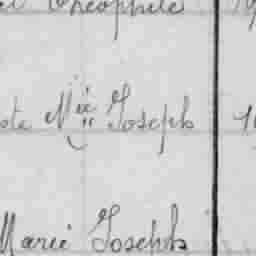 Théophile
Mie Joseph
Marie Joseph